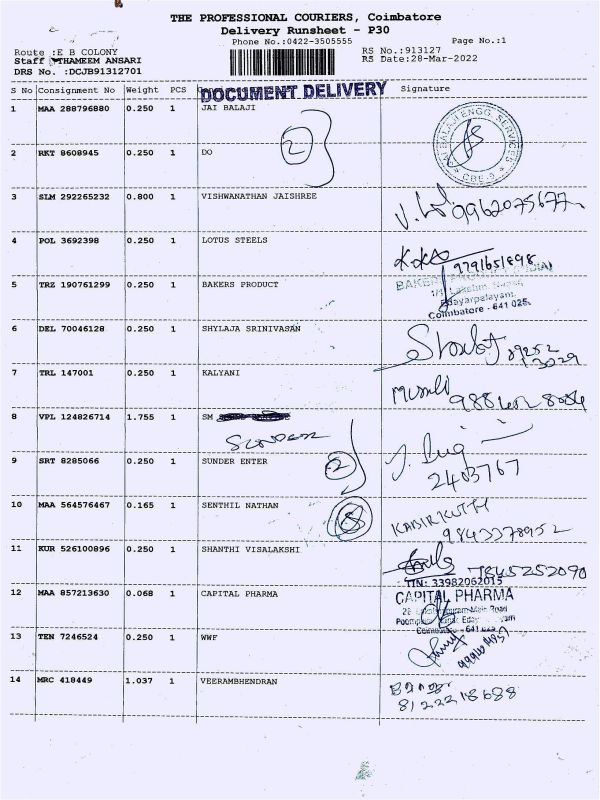 THE PROFESSIONAL COURIERS, Coimbatore
Delivery Runsheet - P30
Phone No.:0422-3505555 Page No.:1
Route :E B COLONY RS No.:913127
Staff :THAMEEM ANSARI RS Date:28-Mar-2022
DRS No. :DCJB91312701
DOCUMENT DELIVERY
S No Consignment No Weight PCS Signature
1 MAA 288796880 0.250 1 JAI BALAJI
2 RKT 8608945 0.250 1 DO 2
3 SLM 292265232 0.800 1 VISHWANATHAN JAISHREE 9962075677
4 POL 3692398 0.250 1 LOTUS STEELS 9791651898
5 TRZ 190761299 0.250 1 BAKERS PRODUCT
Coimbatore - 641 025.
6 DEL 70046128 0.250 1 SHYLAJA SRINIVASAN
7 TRL 147001 0.250 1 KALYANI
8 VPL 124826714 1.755 1 SM
SUNDER
9 SRT 8285066 0.250 1 SUNDER ENTER 2 2403767
10 MAA 564576467 0.165 1 SENTHIL NATHAN KABIRKUTTI
9843378952
11 KUR 526100896 0.250 1 SHANTHI VISALAKSHI 7845252090
TIN: 33982062015
12 MAA 857213630 0.068 1 CAPITAL PHARMA CAPITAL PHARMA
13 TEN 7246524 0.250 1 WWF
14 MRC 418449 1.037 1 VEERAMBHENDRAN